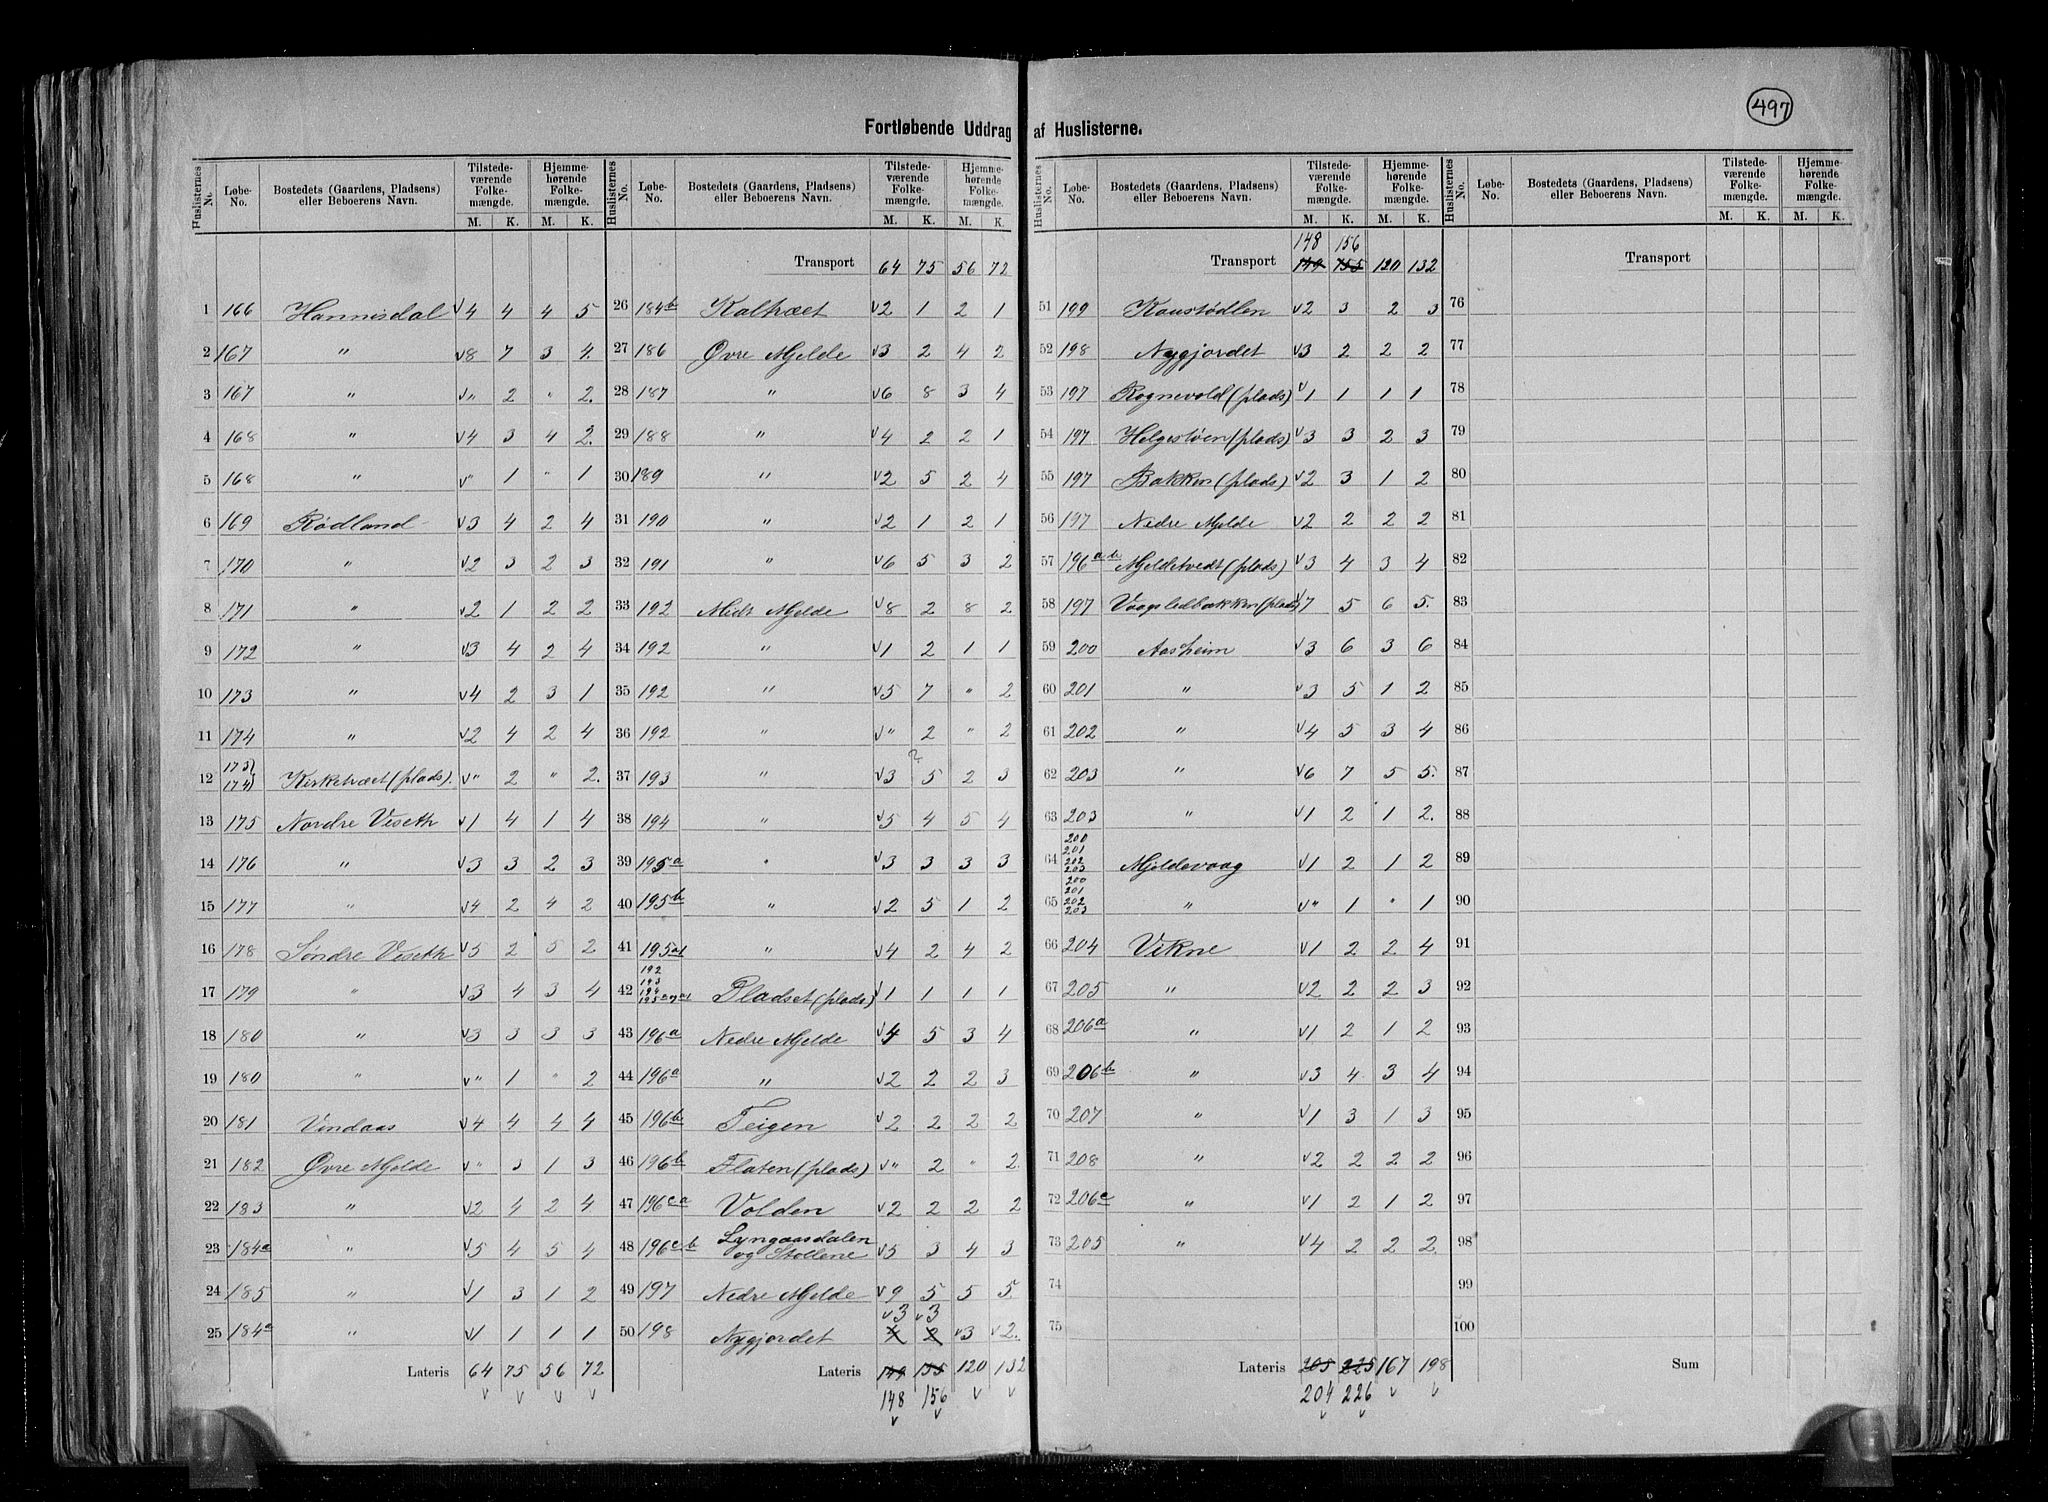 497
Fortløbende Uddrag af Huslisterne.
Huslisternes No. Løbe-No. Bostedets (Gaardens, Pladsens) eller Beboerens Navn. Tilstedeværende Folkemængde. M. K. Hjemmehørende Folkemængde. M. K.
1 166 Hannisdal v4 4 4 5
2 167 " v8 7 3 4.
3 167 " v" 2 " 2.
4 168 " v4 3 4 2.
5 168 " v" 1 " 1
6 169 Rødland v3 4 2 4
7 170 " v2 3 2 3
8 171 " v2 1 2 2
9 172 " v3 4 2 4
10 173 " v4 2 3 1
11 174 " v2 4 2 4
12 173) 174) Kirketræet (plads). v" 2 " 2.
13 175 Nordre Viseth v1 4 1 4
14 176 " v3 3 2 3
15 177 " v4 2 4 2
16 178 Søndre Viseth v5 2 5 2
17 179 " v3 4 3 4
18 180 " v3 3 3 3
19 180 " v" 1 " 2
20 181 Vindaas v4 4 4 4
21 182 Øvre Mjelde v" 3 1 3
22 183 " v2 4 2 4
23 184a " v5 4 5 4
24 185 " v1 3 1 2
25 184a " v1 1 1 1
Lateris 64 75 56 72
v v v v
Huslisternes No. Løbe-No. Bostedets (Gaardens, Pladsens) eller Beboerens Navn. Tilstedeværende Folkemængde. M. K. Hjemmehørende Folkemængde. M. K.
Transport 64 75 56 72
26 184b Kaltræet v2 1 2 1
27 186 Øvre Mjelde v3 2 4 2
28 187 " v6 8 3 4
29 188 " v4 2 2 1
30 189 " v2 5 2 4
31 190 " v2 1 2 1
32 191 " v6 5 3 2
33 192 Midt Mjelde v8 2 8 2
34 192 " v1 2 1 1
35 192 " v5 7 " 2
36 192 " v" 2 " 2
37 193 " v3 5 2 3
38 194 " v5 4 5 4
39 195a " v3 3 3 3
40 195b " v2 5 1 2
41 195a1 " v4 2 4 2
42 192 193 194 Pladset (plads) v1 1 1 1
43 196a Nedre Mjelde v4 5 3 4
44 196a " v2 2 2 3
45 196b Teigen v2 2 2 2
46 196b Flaten (plads) v" 2 " 2.
47 196ca Volden v2 2 2 2
48 196cb Lyngaasdalen og Stollene v5 3 4 3
49 197 Nedre Mjelde v9 5 5 5
v3 v3
50 198 Nygjordet 4 2 v3 v2.
Lateris 149 155 120 132
148 156
v v v v
Huslisternes No. Løbe-No. Bostedets (Gaardens, Pladsens) eller Beboerens Navn. Tilstedeværende Folkemængde. M. K. Hjemmehørende Folkemængde. M. K.
148 156
Transport 149 155 120 132
51 199 Kaustødlen v2 3 2 3
52 198 Nygjordet v3 2 2 2
53 197 Rognevold (plads) v1 1 1 1
54 197 Helgestøen (plads) v3 3 2 3
55 197 Bakken (plads) v2 3 1 2
56 197 Nedre Mjelde v2 2 2 2
57 196ab Mjeldetvedt (plads) v3 4 3 4
58 197 Vaagsledbakken (plads) v7 5 6 5.
59 200 Aasheim v3 6 3 6
60 201 " v3 5 1 2
61 202 " v4 5 3 4
62 203 " v6 7 5 5.
63 203 " v1 2 1 2.
64 200 201 202 203 Mjeldevaag v1 2 1 2
65 200 201 202 203 " v" 1 " 1
66 204 Vikne v1 2 2 4
67 205 " v2 2 2 3
68 206a " v1 2 1 2
69 206b " v3 4 3 4
70 207 " v1 3 1 3
71 208 " v2 2 2 2
72 206c " v1 2 1 2
73 205 " v4 2 2 2
74
75
Lateris 205 225 167 198
204 226
v v v v
Huslisternes No. Løbe-No. Bostedets (Gaardens, Pladsens) eller Beboerens Navn. Tilstedeværende Folkemængde. M. K. Hjemmehørende Folkemængde. M. K.
Transport
76
77
78
79
80
81
82
83
84
85
86
87
88
89
90
91
92
93
94
95
96
97
98
99
100
Sum